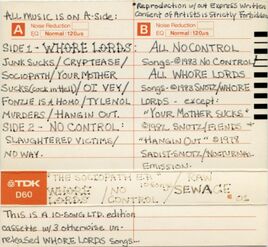 ALL MUSIC IS ON A-SIDE:
*Reproduction w/out EXPRESS Written
Consent of Artists is Strictly Forbidden
A
Noise Reduction
Normal:120us
SIDE 1 - WHORE LORDS:
JUNK SUCKS / CRYPTEASE /
SOCIOPATH / YOUR MOTHER
SUCKS (COCK IN HELL) / OI VEY /
FONZIE IS A HOMO / TYLENOL
MURDERS / HANGIN OUT.
SIDE 2 - NO CONTROL:
SLAUGHTERED VICTIMS /
NO WAY.
B
Noise Reduction
Normal:120us
ALL NO CONTROL
SONGS-©1983 NO CONTROL /
ALL WHORE LORDS
SONGS-©1983 SNOTZ/WHORE
LORDS - except:
"YOUR MOTHER SUCKS"
©1982 SNOTZ/FIENDS &
"HANGIN OUT" ©1979
SADIST-SNOTZ/NOCTURNAL
EMISSION.
TDK
D60
THE SOCIOPATH E.P.
RAW
WHORE
LORDS
/NO
CONTROL/
SEWAGE
THIS IS A 10-SONG LTD. edition
cassette w/3 otherwise un-
released WHORE LORDS songs...